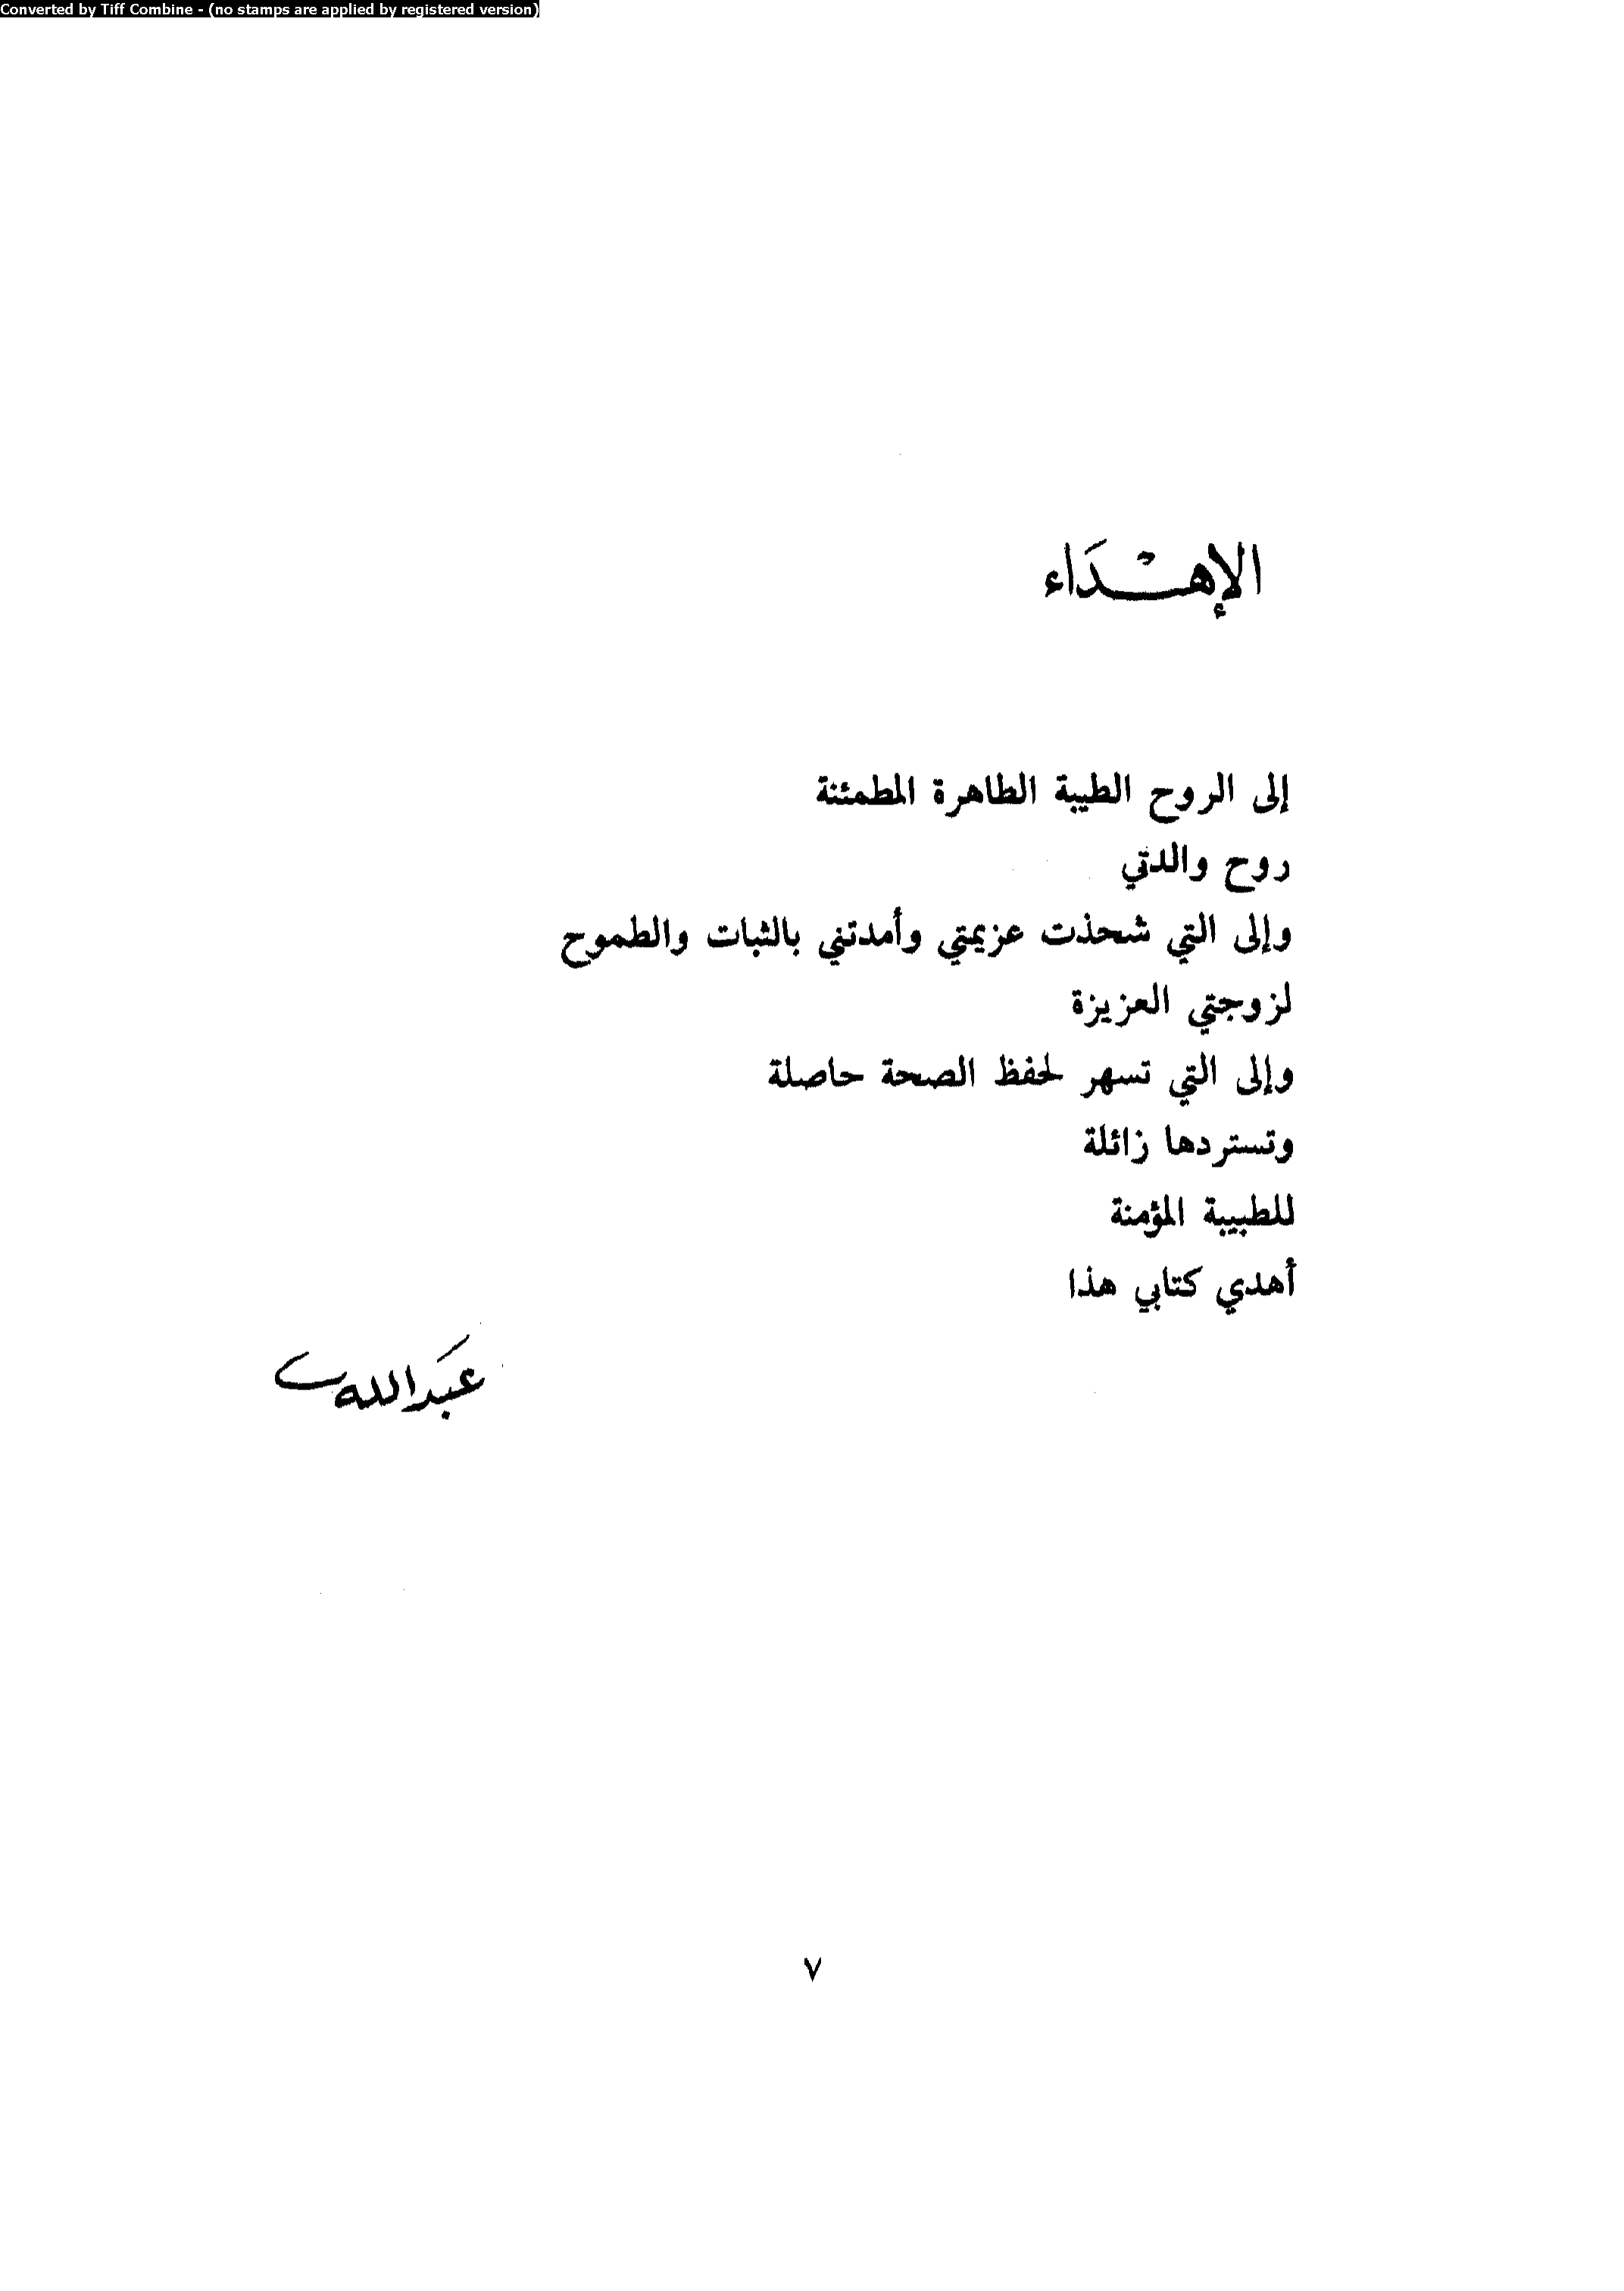 Converted by Tiff Combine - (no stamps are applied by registered version)
الإهْدَاء
إلى الروح الطيبة الطاهرة المطمئنة
روح والدتي
وإلى التي شحذت عزيمتي وأمدتني بالثبات والطموح
لزوجتي العزيزة
وإلى التي تسهر لحفظ الصحة حاصلة
وتستردها زائلة
للطبيبة المؤمنة
أهدي كتابي هذا
عَبدالله
٧